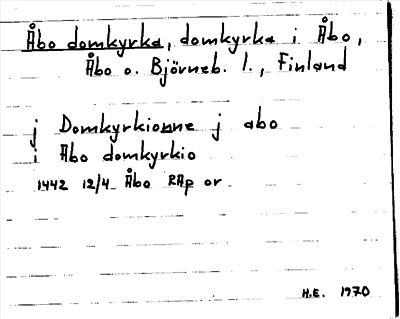 Åbo domkyrka, domkyrka i Åbo,
Åbo o. Björneb. l., Finland
j Domkyrkionne j abo
i Abo domkyrkio
1442 12/4 Åbo RAp or
H.E. 1970